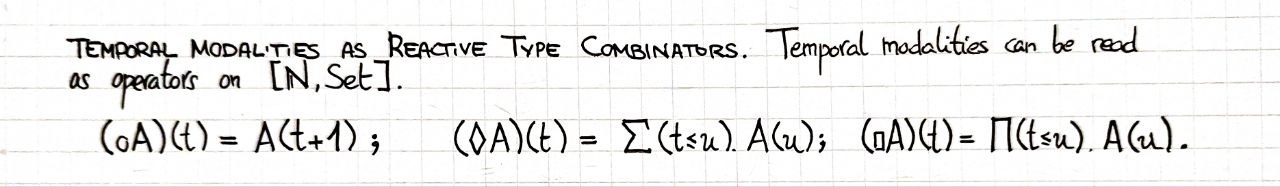 TEMPORAL MODALITIES AS REACTIVE TYPE COMBINATORS. Temporal modalities can be read
as operators on [ℕ, Set].
(○A)(t) = A(t+1); (◊A)(t) = Σ(t≤u). A(u); (□A)(t) = Π(t≤u). A(u).